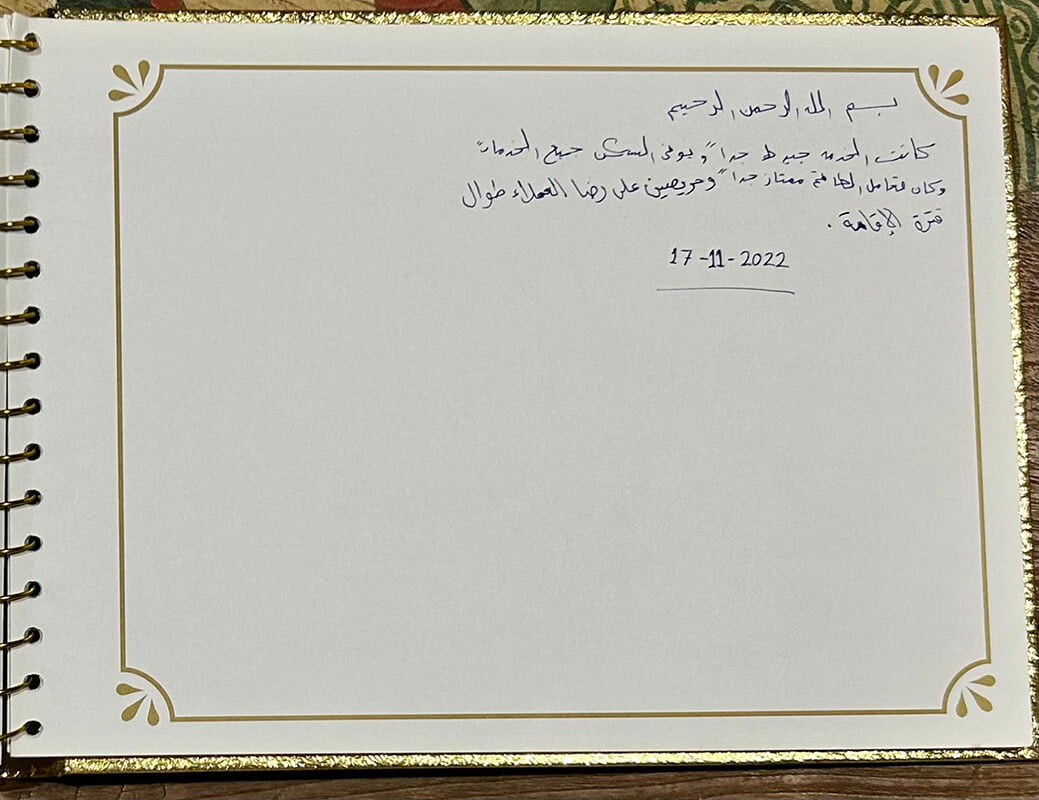 بسم الله الرحمن الرحيم
كانت الخدمه جيدة جداً ويوفر السكن جميع الخدمات
وكان تعامل الطاقم ممتاز جداً وحريصين على رضا العملاء طوال
فترة الإقامة .
17-11-2022